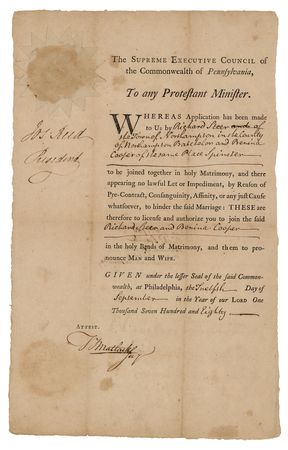 The SUPREME EXECUTIVE COUNCIL of
the Commonwealth of Pennsylvania,
To any Protestant Minister.
Jos Reed
President
WHEREAS Application has been made
to Us by Richard
the Town of Northampton in the County
of Northampton Batchelor and
Cooper of the same Place Spinster
to be joined together in holy Matrimony, and there
appearing no lawful Let or Impediment, by Reason of
Pre-Contract, Consanguinity, Affinity, or any just Cause
whatsoever, to hinder the said Marriage: THESE are
therefore to license and authorize you to join the said
Richard and Cooper
in the holy Bands of Matrimony, and them to
pronounce MAN and WIFE.
GIVEN under the lesser Seal of the said Common-
wealth, at Philadelphia, the Twelfth Day of
September in the Year of our LORD One
Thousand Seven Hundred and Eighty
ATTEST.
T Matlack